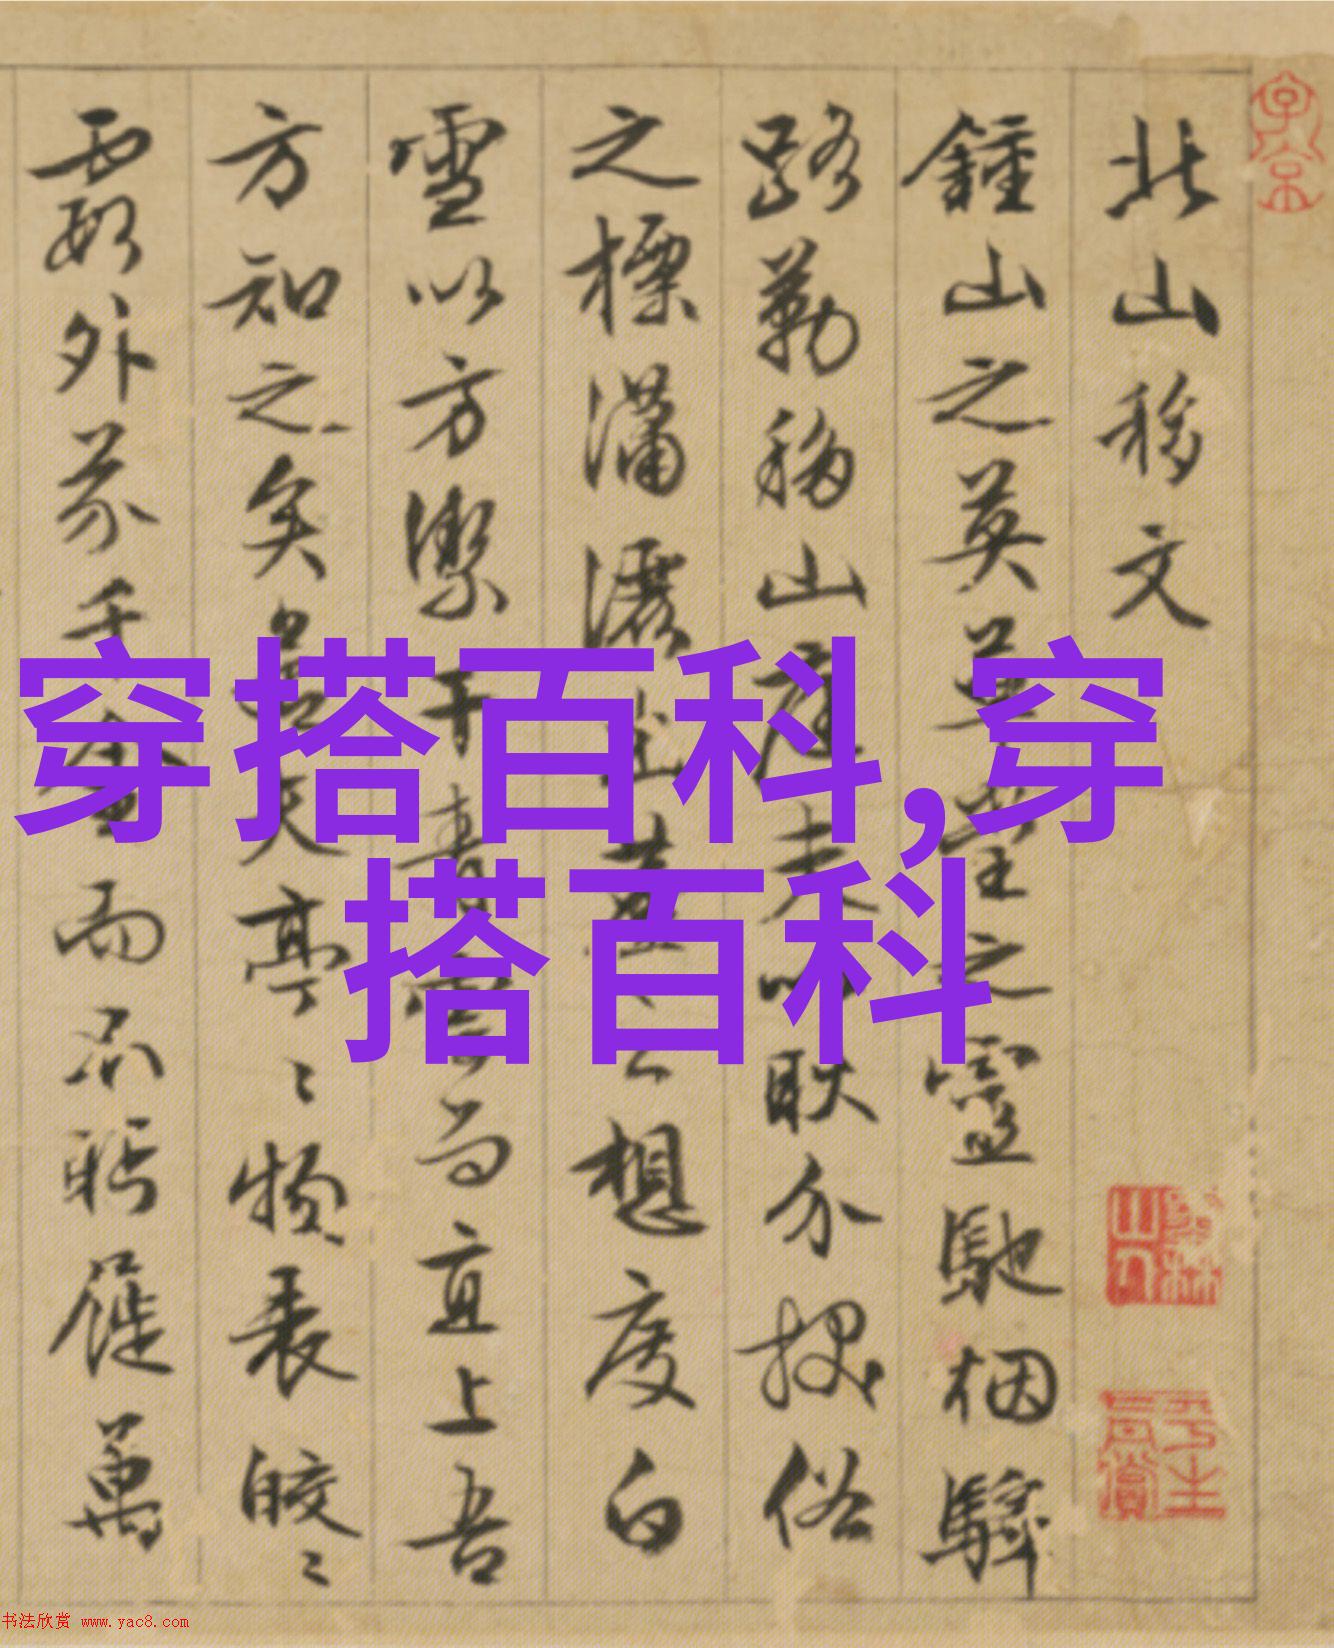 穿搭百科,穿
搭百科
北山移文
鍾山之英草堂之靈馳烟驛
路勒移山庭夫以耿介拔俗
之標瀟灑出塵之想度白
雪以方潔干青雲而直上吾
方知之矣若夫亭〻物表皎〻
霞外芥千金而不眄屣萬
书法欣赏 www.yac8.com